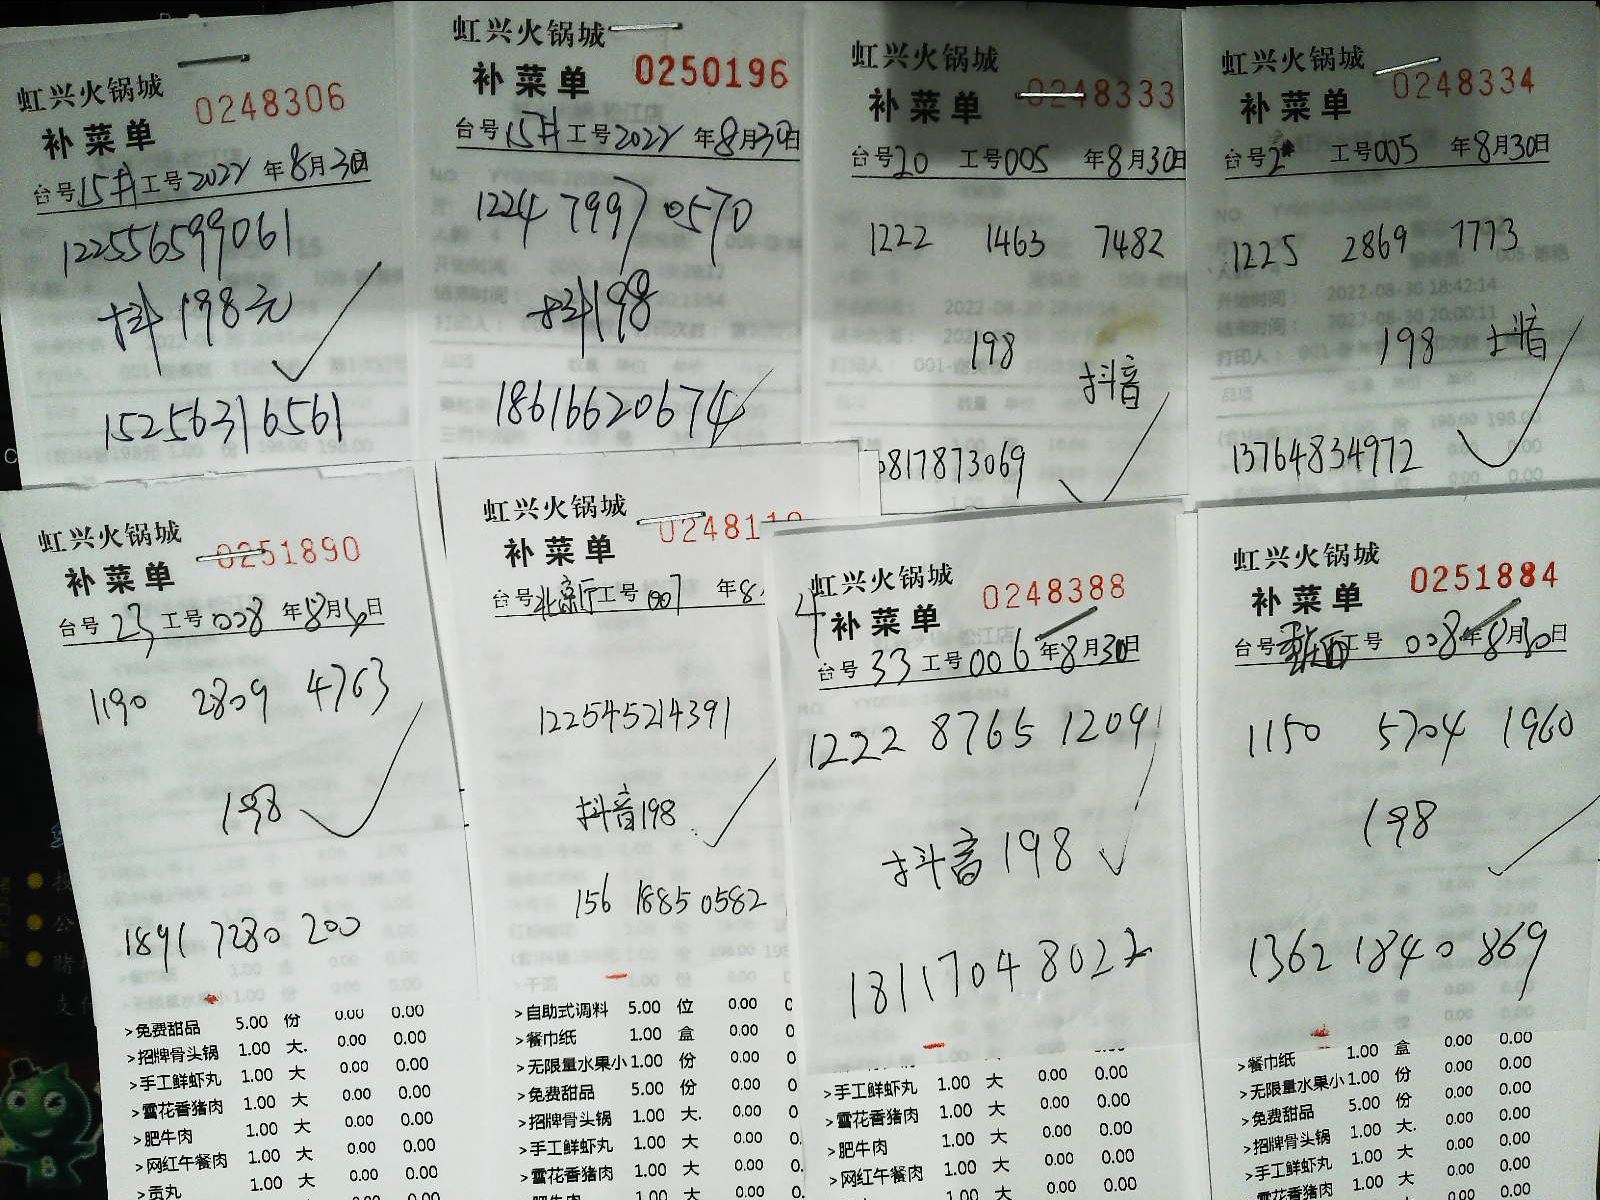 虹兴火锅城
补菜单 0248306
台号15井工号2022年8月30日
122556599061
抖198元
15256316561
虹兴火锅城
补菜单 0250196
台号15井工号2022年8月30日
1224 7997 0570
抖198
18616620674
虹兴火锅城
补菜单 0248333
台号20 工号005 年8月30日
1222 1463 7482
198
抖音
0817873069
虹兴火锅城
补菜单 0248334
台号2 工号005 年8月30日
1225 2869 7773
2022-08-30 18:42:14
2022-08-30 20:00:11
198 抖音
13764834972
虹兴火锅城
补菜单 0251890
台号23工号008年8月30日
1190 2809 4763
198
1891 7280 200
>免费甜品 5.00 份 0.00 0.00
>招牌骨头锅 1.00 大. 0.00 0.00
>手工鲜虾丸 1.00 大 0.00 0.00
>雪花香猪肉 1.00 大 0.00 0.00
>肥牛肉 1.00 大 0.00 0.00
>网红午餐肉 1.00 大 0.00 0.00
>贡丸 1.00 大 0.00 0.00
虹兴火锅城
补菜单 0248110
台号北京厅工号007 年8
122545214391
抖音198
156 18850582
>自助式调料 5.00 位 0.00
>餐巾纸 1.00 盒 0.00
>无限量水果小 1.00 份 0.00
>免费甜品 5.00 份 0.00
>招牌骨头锅 1.00 大. 0.00
>手工鲜虾丸 1.00 大 0.00
>雪花香猪肉 1.00 大 0.00
>肥牛肉 1.00 大 0.00
虹兴火锅城
补菜单 0248388
台号33工号006年8月30日
1222 8765 1209
抖音198
18117048022
>手工鲜虾丸 1.00 大 0.00 0.00
>雪花香猪肉 1.00 大 0.00 0.00
>肥牛肉 1.00 大 0.00 0.00
>网红午餐肉 1.00 大 0.00 0.00
虹兴火锅城
补菜单 0251884
台号 工号008年8月30日
1150 5704 1960
198
1362 1840 869
>餐巾纸 1.00 盒 0.00 0.00
>无限量水果小 1.00 份 0.00 0.00
>免费甜品 5.00 份 0.00 0.00
>招牌骨头锅 1.00 大. 0.00 0.00
>手工鲜虾丸 1.00 大 0.00 0.00
>雪花香猪肉 1.00 大 0.00 0.00